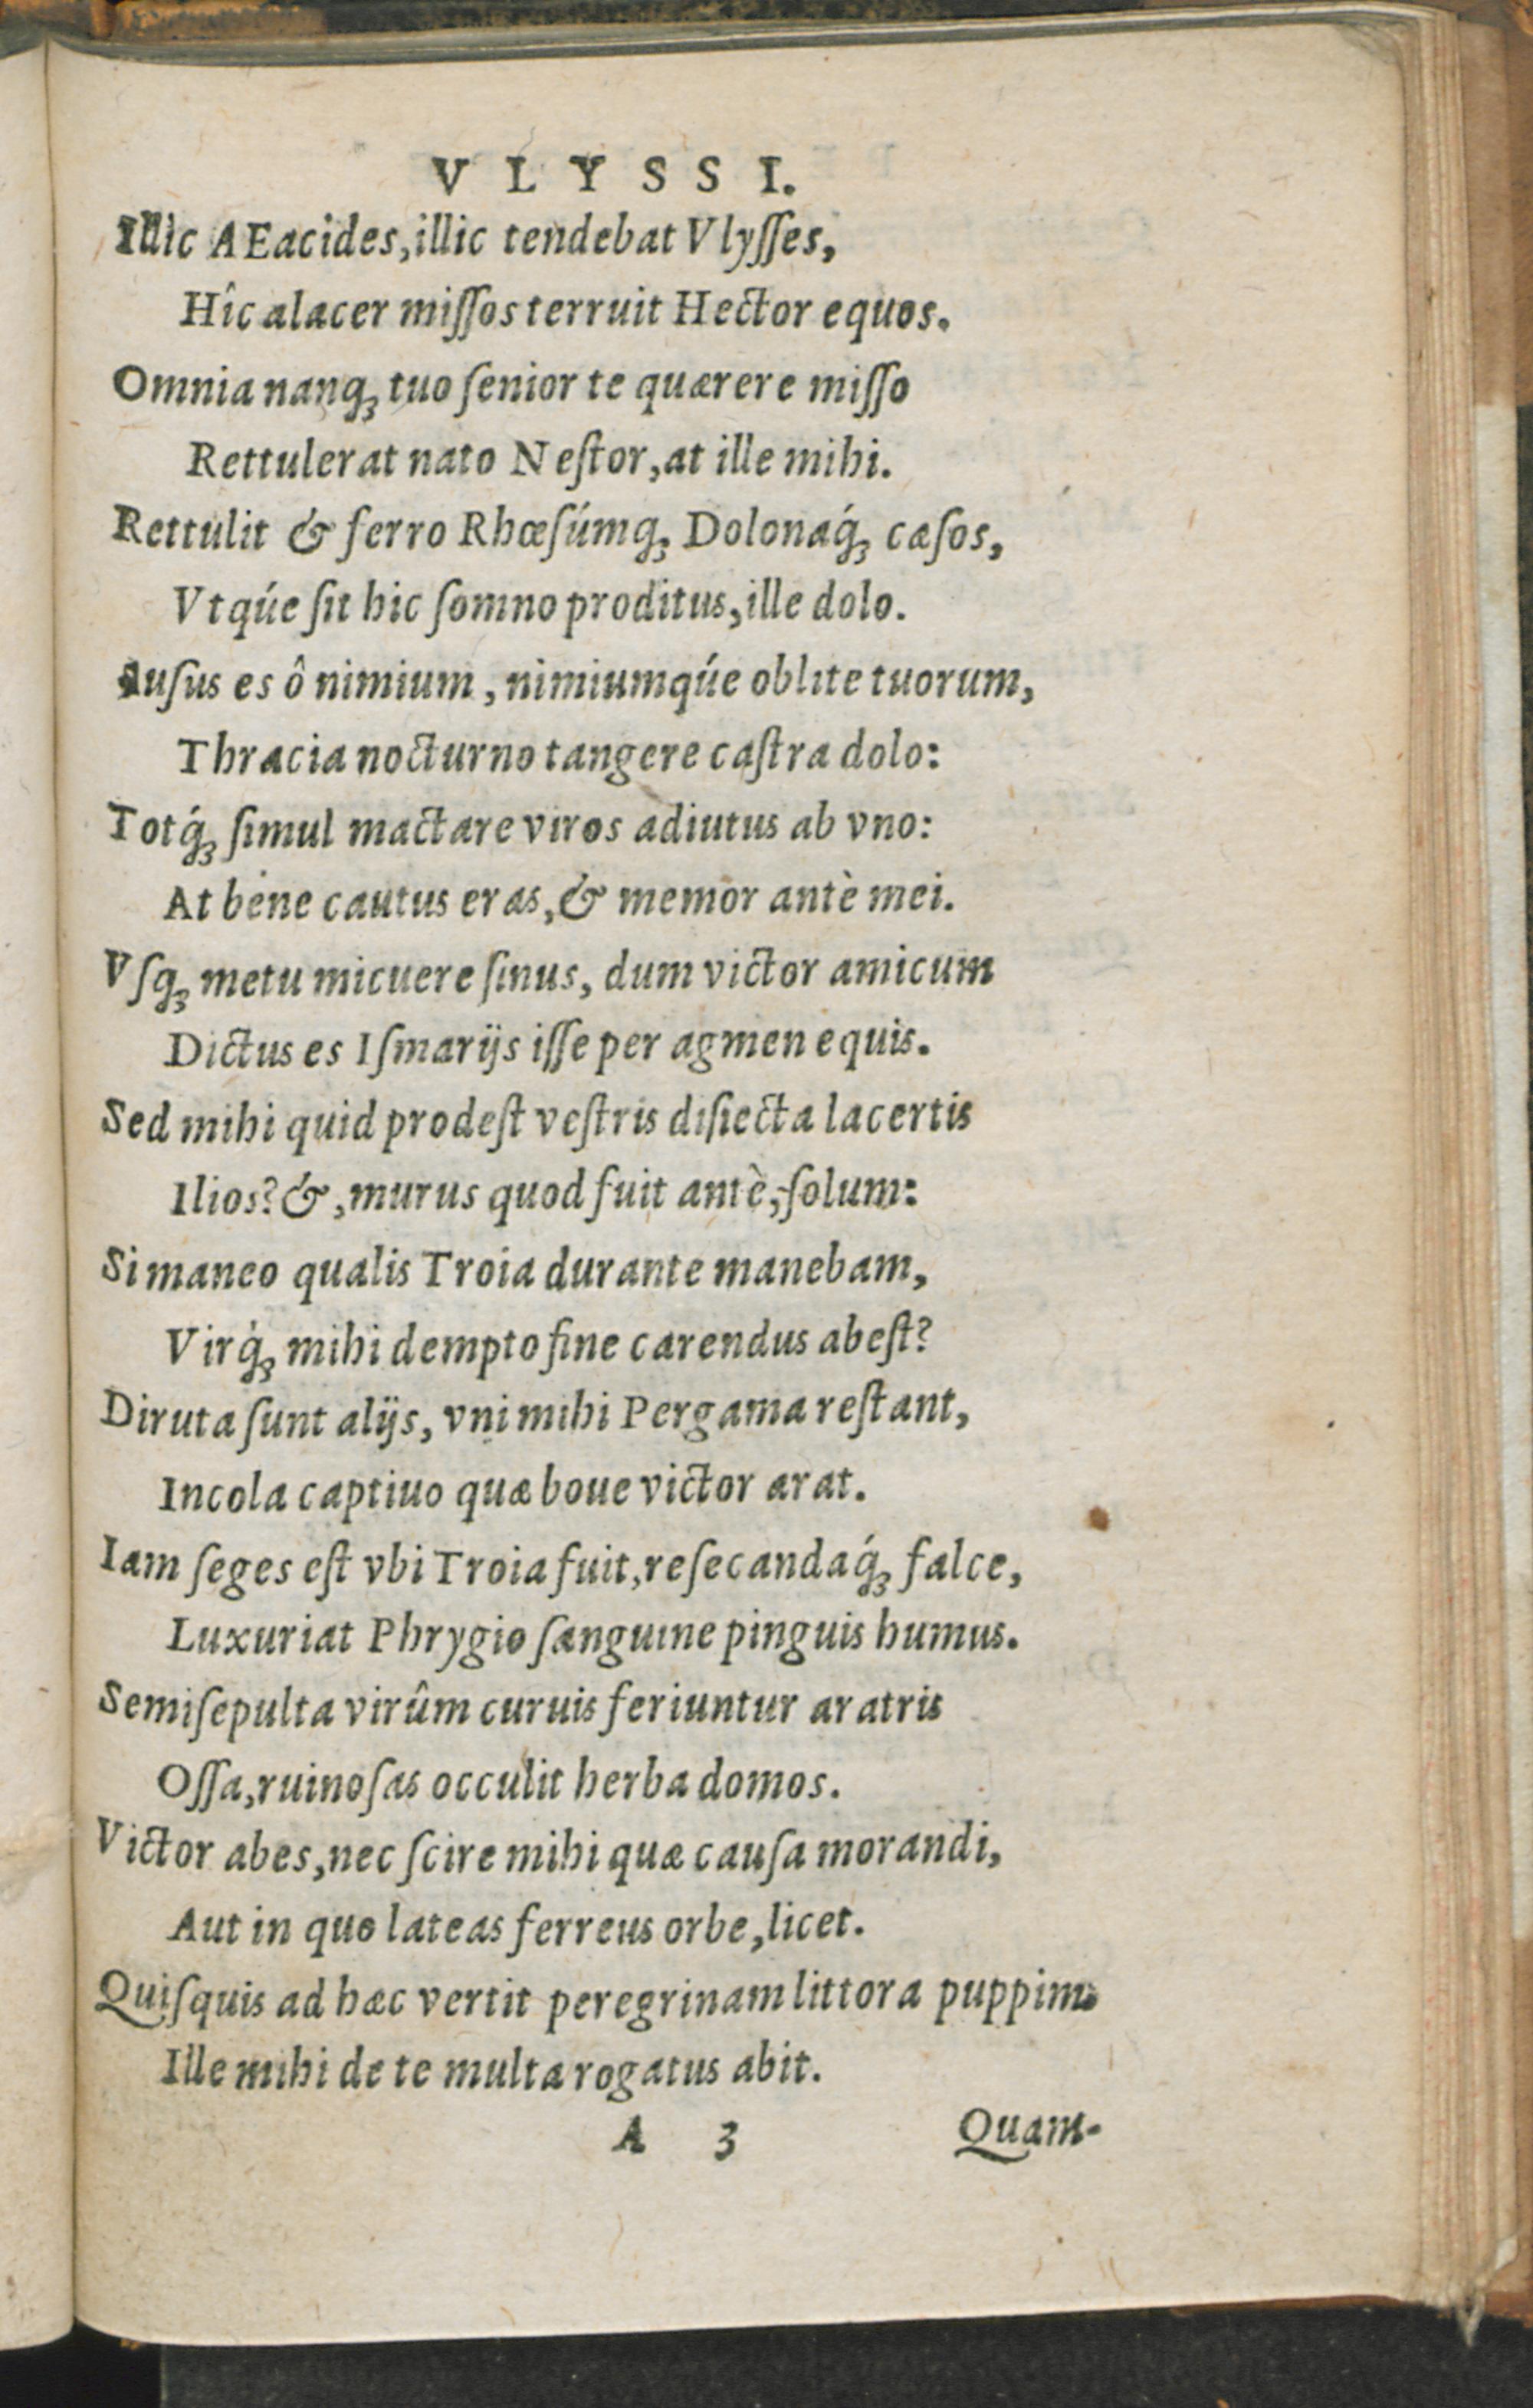 VLYSSI.
Illic AEacides, illic tendebat Vlyſſes,
Hîc alacer miſſos terruit Hector equos.
Omnia nanq́; tuo ſenior te quærere miſſo
Rettulerat nato Neſtor, at ille mihi.
Rettulit & ferro Rhœſúmq; Dolonaq́; cæſos,
Vtqúe ſit hic ſomno proditus, ille dolo.
Auſus es ô nimium, nimiumqúe oblite tuorum,
Thracia nocturno tangere caſtra dolo:
Totq́; ſimul mactare viros adiutus ab vno:
At bene cautus eras, & memor antè mei.
Vſq; metu micuere ſinus, dum victor amicum
Dictus es Iſmarijs iſſe per agmen equis.
Sed mihi quid prodeſt veſtris diſiecta lacertis
Ilios? &, murus quod fuit antè, ſolum:
Si maneo qualis Troia durante manebam,
Virq́; mihi dempto fine carendus abeſt?
Diruta ſunt alijs, vni mihi Pergama reſtant,
Incola captiuo quæ boue victor arat.
Iam ſeges eſt vbi Troia fuit, reſecandaq́; falce,
Luxuriat Phrygio ſanguine pinguis humus.
Semiſepulta virûm curuis feriuntur aratris
Oſſa, ruinoſas occulit herba domos.
Victor abes, nec ſcire mihi quæ cauſa morandi,
Aut in quo lateas ferreus orbe, licet.
Quiſquis ad hæc vertit peregrinam littora puppim,
Ille mihi de te multa rogatus abit.
A 3 Quam-